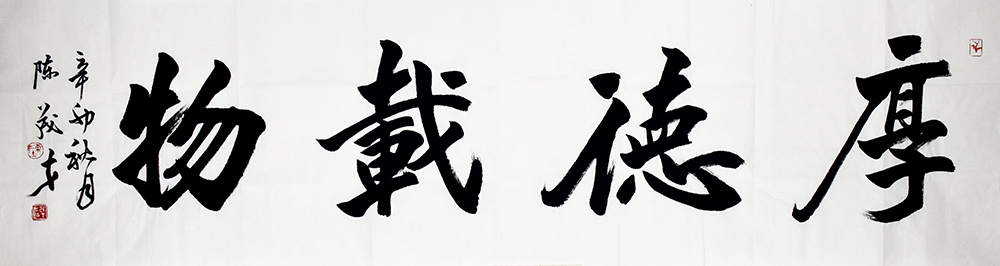 厚德載物
辛卯秋月
陈義